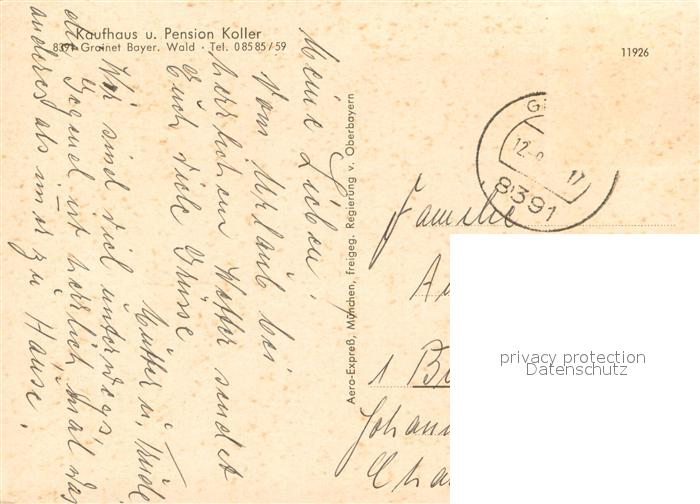 Kaufhaus u. Pension Koller
8391 Grainet Bayer. Wald · Tel. 08585/59
11926
Meine Lieben!
Vom Urlaub bei
herrlichem Wetter sendet
Euch viele Grüsse
Mutter u.
Wir sind viel unterwegs,
die Gegend ist herrlich, mal was
anderes als immer zu Hause.
Aero-Expreß, München, freigeg. Regierung v. Oberbayern
G
12.
17
8391
Familie
1 B
Johann
Cha
privacy protection
Datenschutz